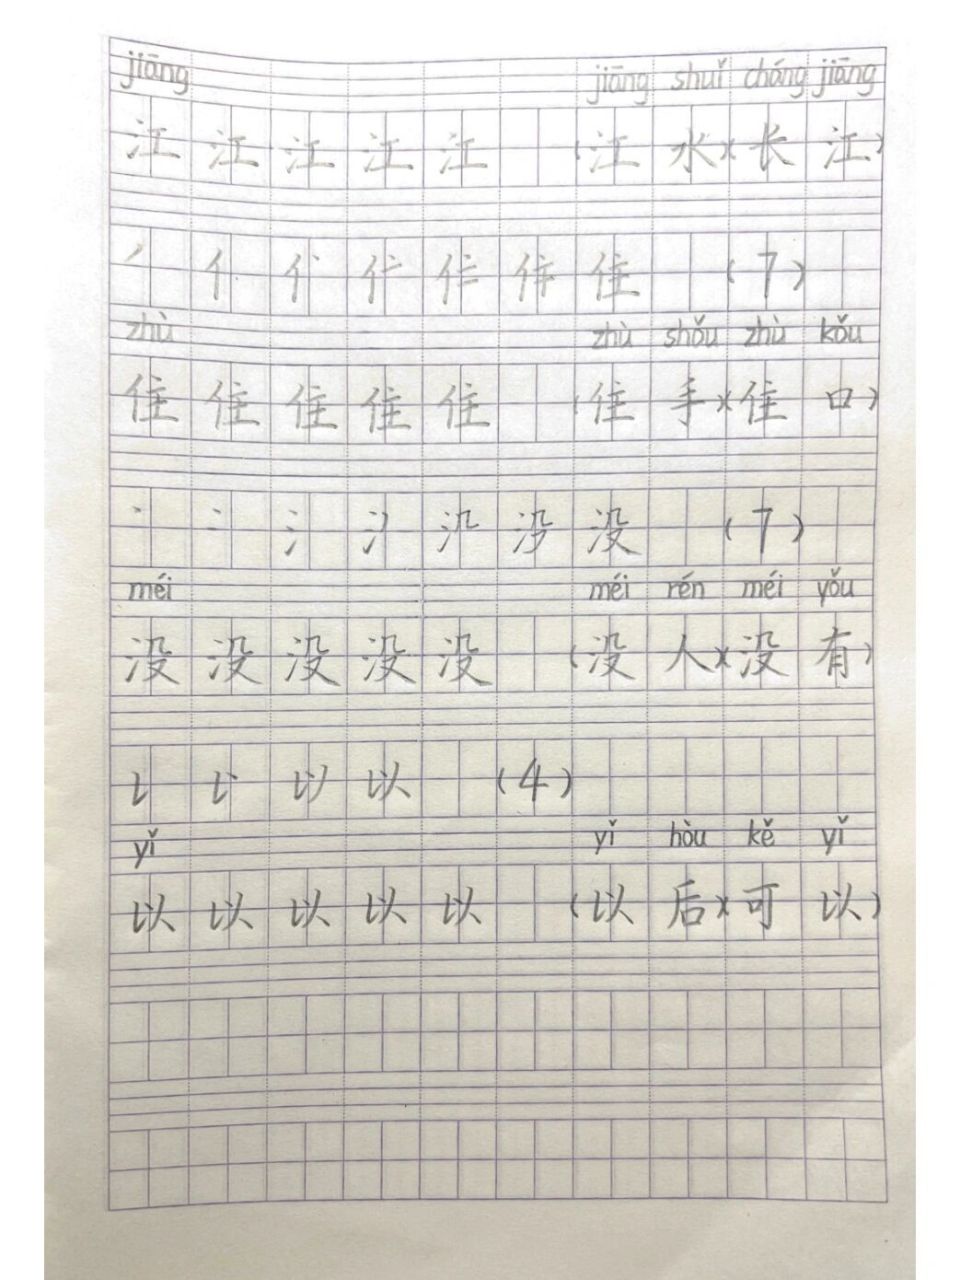 jiāng jiāng shuǐ cháng jiāng
江 江 江 江 江 (江 水)(长 江)
丿 亻 亻 住 (7)
zhù zhù shǒu zhù kǒu
住 住 住 住 住 (住 手)(住 口)
丶 冫 氵 没 (7)
méi méi rén méi yǒu
没 没 没 没 没 (没 人)(没 有)
以 (4)
yǐ yǐ hòu kě yǐ
以 以 以 以 以 (以 后)(可 以)